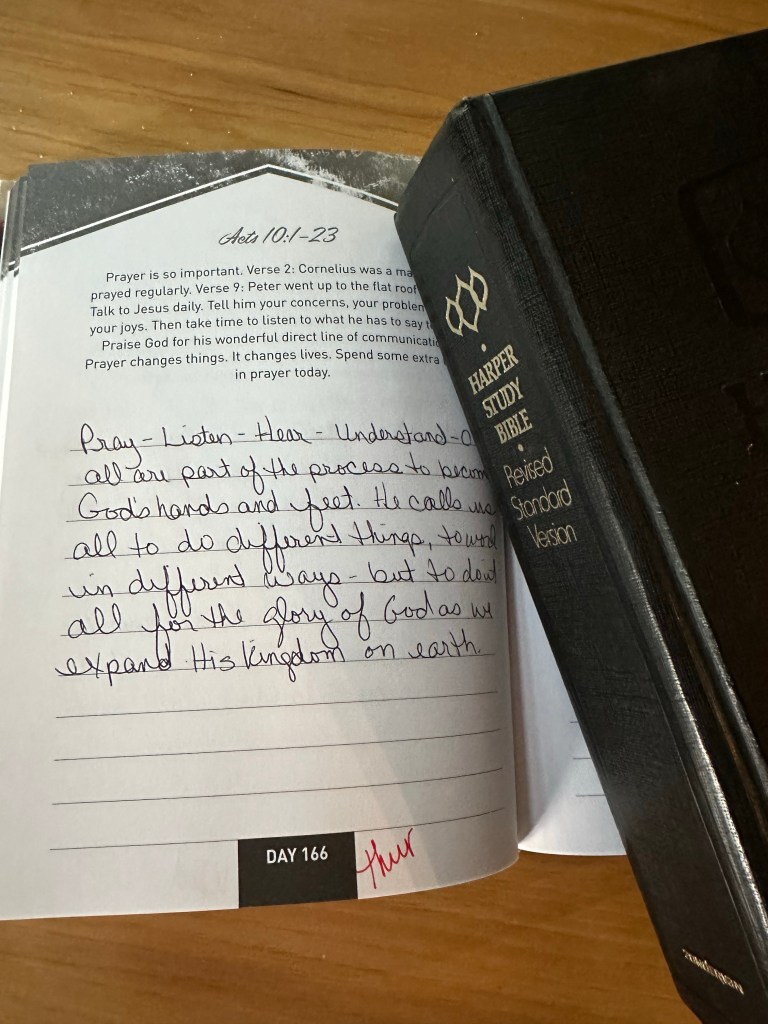 Acts 10:1-23
Prayer is so important. Verse 2: Cornelius was a ma
prayed regularly. Verse 9: Peter went up to the flat roof
Talk to Jesus daily. Tell him your concerns, your problem
your joys. Then take time to listen to what he has to say t
Praise God for his wonderful direct line of communicatio
Prayer changes things. It changes lives. Spend some extra
in prayer today.
Pray - Listen - Hear - Understand - O
all are part of the process to becom
God's hands and feet. He calls us
all to do different things, to work
in different ways - but to do it
all for the glory of God as we
expand His Kingdom on earth.
DAY 166
thur
HARPER
STUDY
BIBLE
Revised
Standard
Version
Zondervan